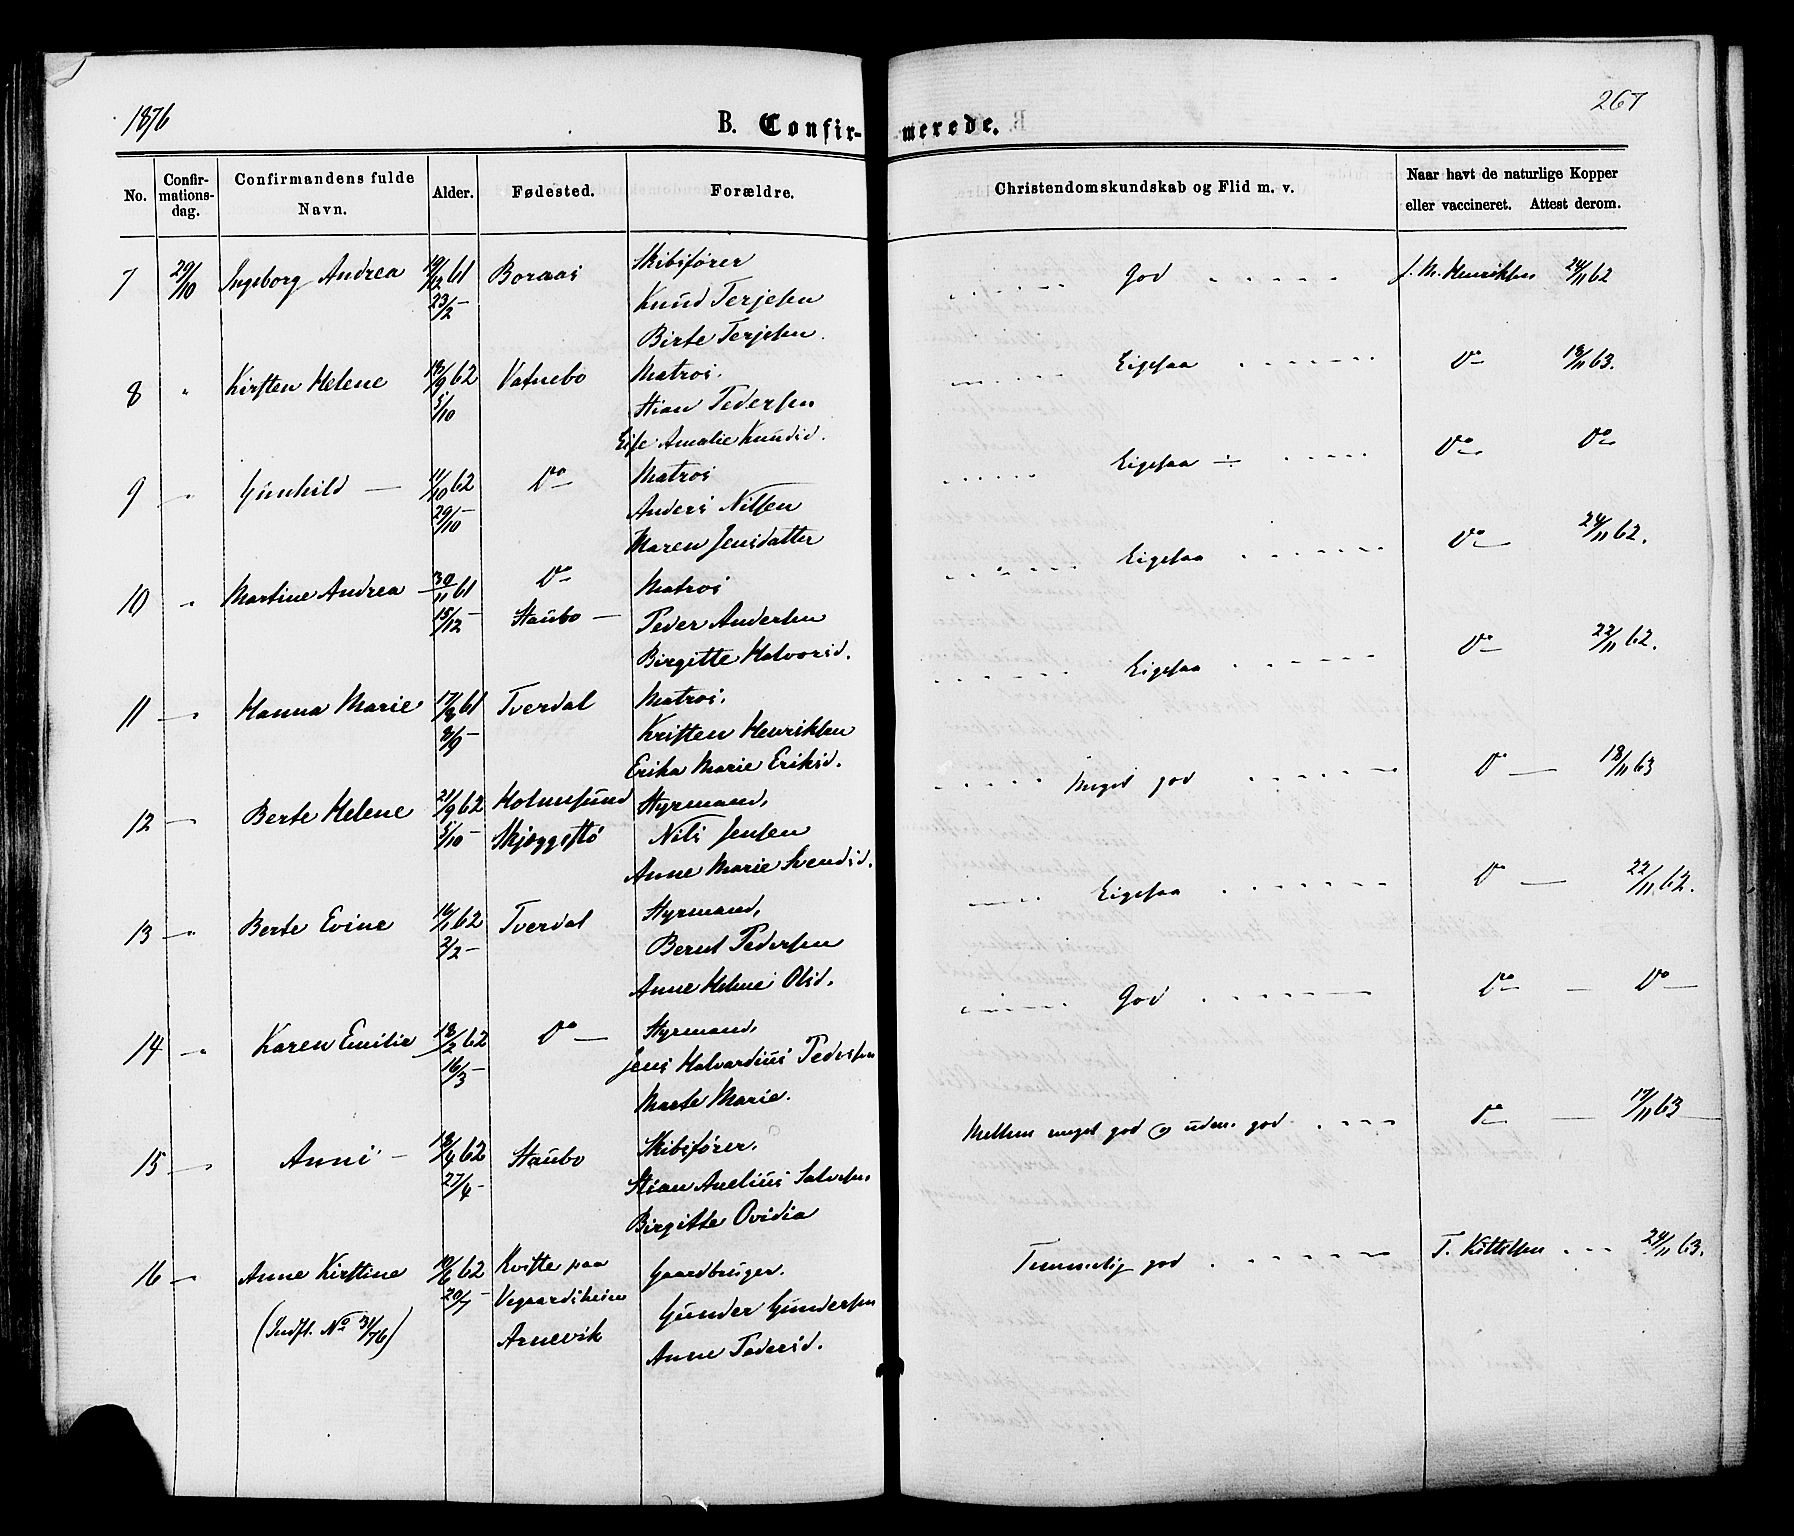 1876
B. Confirmerede.
267
No.
Confirmationsdag.
Confirmandens fulde Navn.
Alder.
Fødested.
Forældre.
Christendomskundskab og Flid m. v.
Naar havt de naturlige Kopper
eller vaccineret. Attest derom.
7 29/10 Ingeborg Andrea 19/12 61 Boraas Skibsfører God J. M. Henriksen 24/11 62
23/2 - Knud Terjesen
Birte Terjesen.
8 " Kirsten Helene 18/9 62 Vatnebo Matros. Ligesaa Do 18/11 63.
5/10 Stian Pedersen
Else Amalie Knudsd.
9 " Gunhild — 11/10 62 Do Matros Ligesaa ÷ Do Do
29/10 - Anders Nilsen
Maren Jensdatter
10 " Martine Andrea 30/11 61 Do Matros Ligesaa Do 24/11 62.
15/12 - Staubo — Peder Andersen
Birgitte Halvorsd.
11 " Hanna Marie 17/8 61 Tverdal Matros. Ligesaa Do 22/11 62.
8/9 - Kristen Henriksen
Erika Marie Eriksd.
12 " Berte Helene 21/9 62 Holmesund Styrmand, Meget god Do 18/11 63
5/10 - Skjæggestø Nils Jensen
Anne Marie Svendsd.
13 " Berte Evine 16/1 62 Tverdal Styrmand, Ligesaa Do 22/11 62.
2/2 - Bernt Pedersen
Anne Helene Olsd.
14 " Karen Emilie 18/2 62 Do Styrmand, God Do Do
16/3 - Jens Halvardius Pedersen
Marte Marie.
15 " Anne 18/4 62 Staubo Skibsfører. Mellem meget god og uden. god Do 17/11 63
27/4 - Stian Anelius Salvesen
Birgitte Ovidia
16 " Anne Kirstine 10/6 62 Kviste paa Gaardbruger. Temmelig god T. Kittelsen 24/11 63.
20/7 - Vegaardsheien Gunder Gundersen
(Indfl. No 31/76) Arnevik Anne Pedersd.